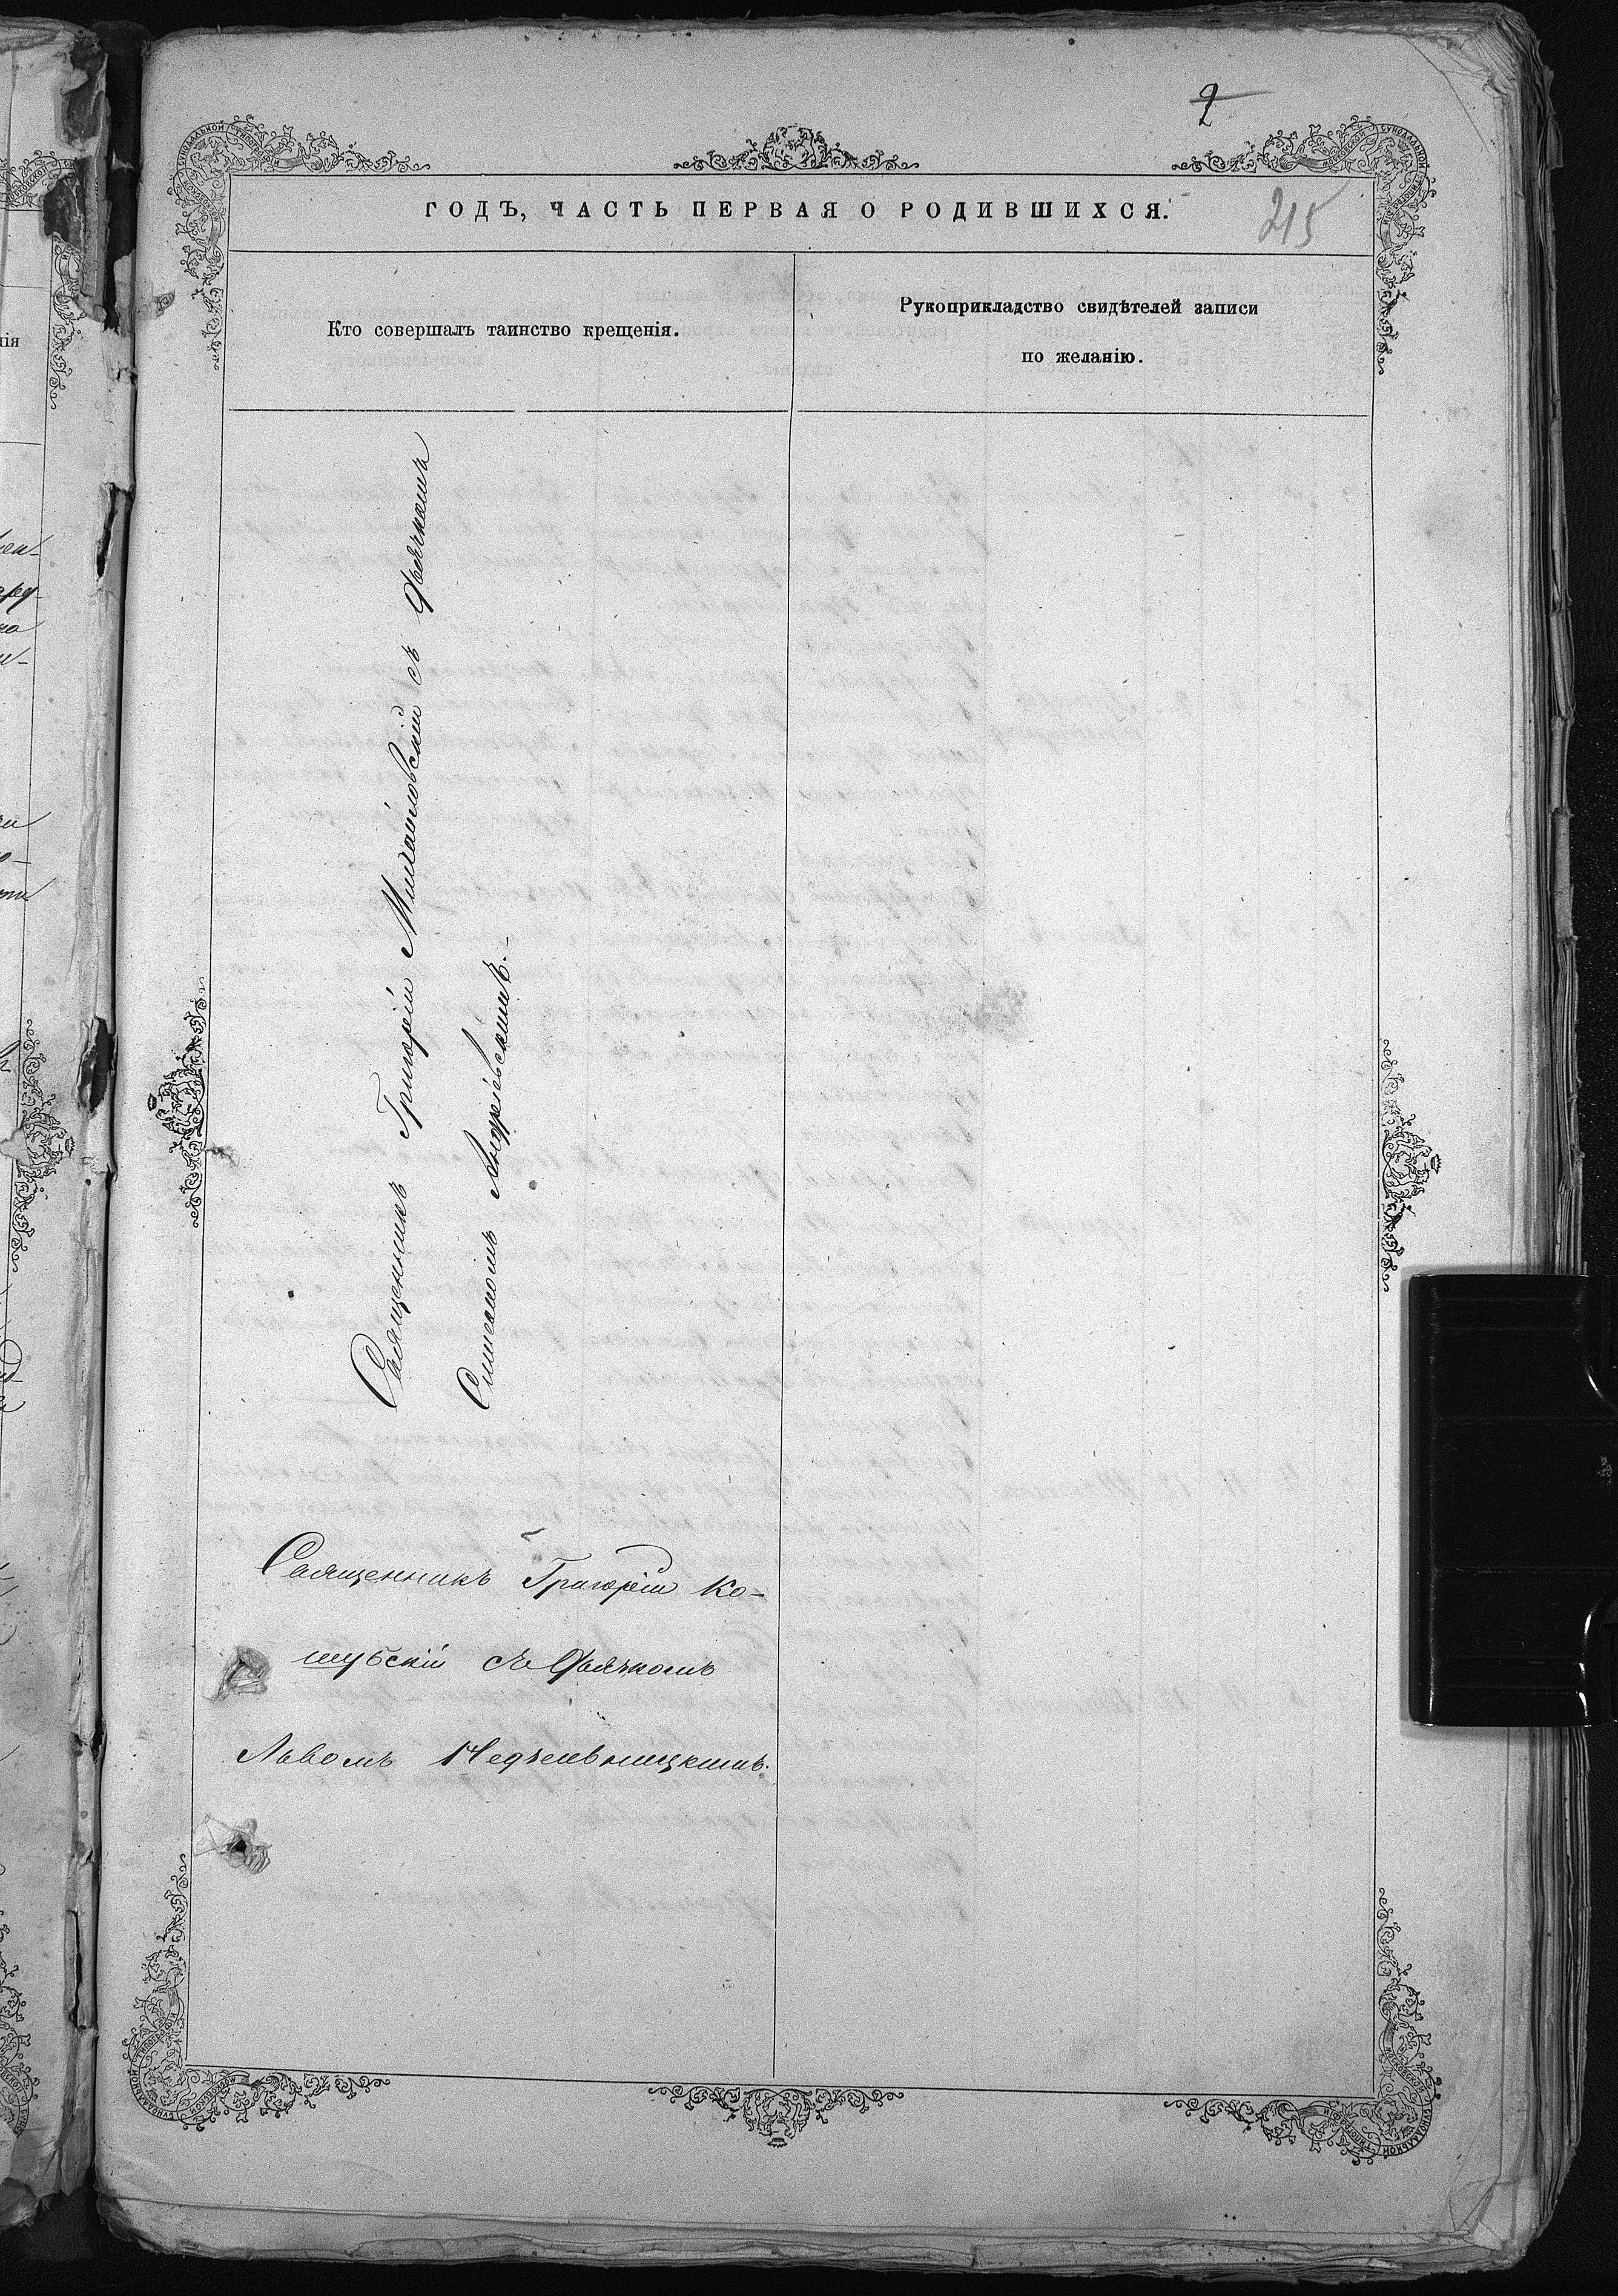 2
215
ГОДЪ, ЧАСТЬ ПЕРВАЯ О РОДИВШИХСЯ.
Кто совершалъ таинство крещенія.
Рукоприкладство свидѣтелей записи
по желанію.
Священникъ Григорій Михайловскій съ Дьячкомъ
Симеономъ Андріевскимъ.
Священникъ Григорій Ко-
шубскій съ Дьячкомъ
Львомъ Недѣльницкимъ.